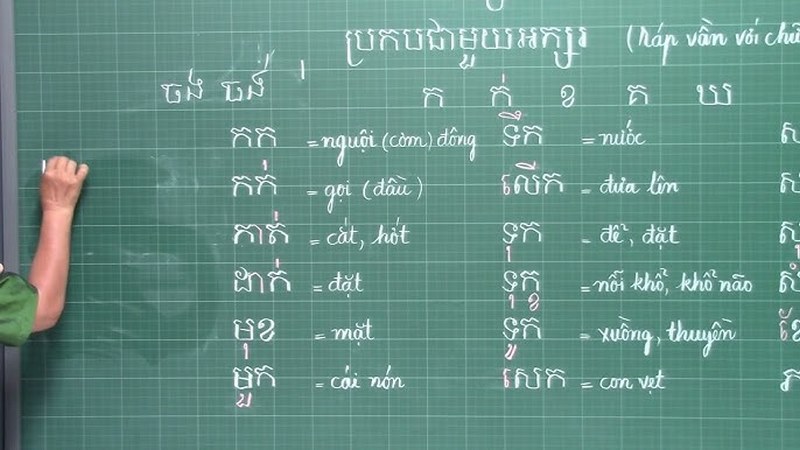 ប្រកបជាមួយអក្សរ (ráp vần với chữ
ចង ចង់ ់ ក ក់ ខ គ ឃ
កក = nguội (cơm) đông ទឹក = nước
កក់ = gọi (đầu) លើក = đưa lên
កាត់ = cắt, hớt ទុក = để, đặt
ដាក់ = đặt ទុក្ខ = nỗi khổ, khổ não
មុខ = mặt ទូក = xuồng, thuyền
មួក = cái nón សេក = con vẹt